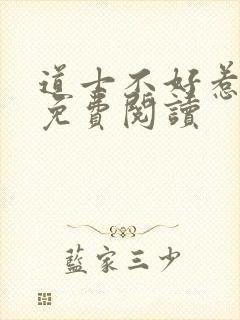 道士不好惹
免費閱讀
藍家三少